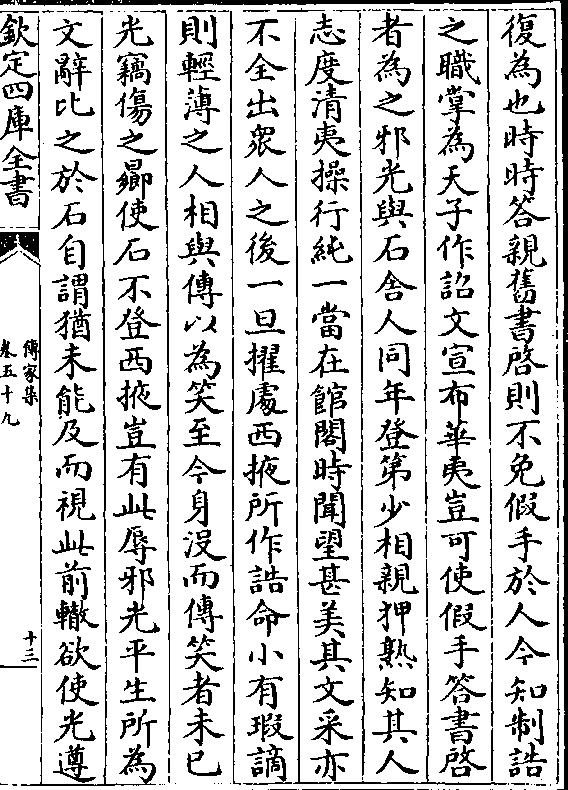 復為也時時答親舊書啓則不免假手於人今知制誥
之職掌為天子作詔文宣布華夷豈可使假手答書啓
者為之邪光與石舍人同年登第少相親狎熟知其人
志度清夷操行純一當在館閣時聞望甚美其文采亦
不全出衆人之後一旦擢處西掖所作誥命小有瑕謫
則輕薄之人相與傳以為笑至今身沒而傳笑者未已
光竊傷之曏使石不登西掖豈有此辱邪光平生所為
文辭比之於石自謂猶未能及而視此前轍欲使光遵
欽定四庫全書
傳家集
卷五十九
十三